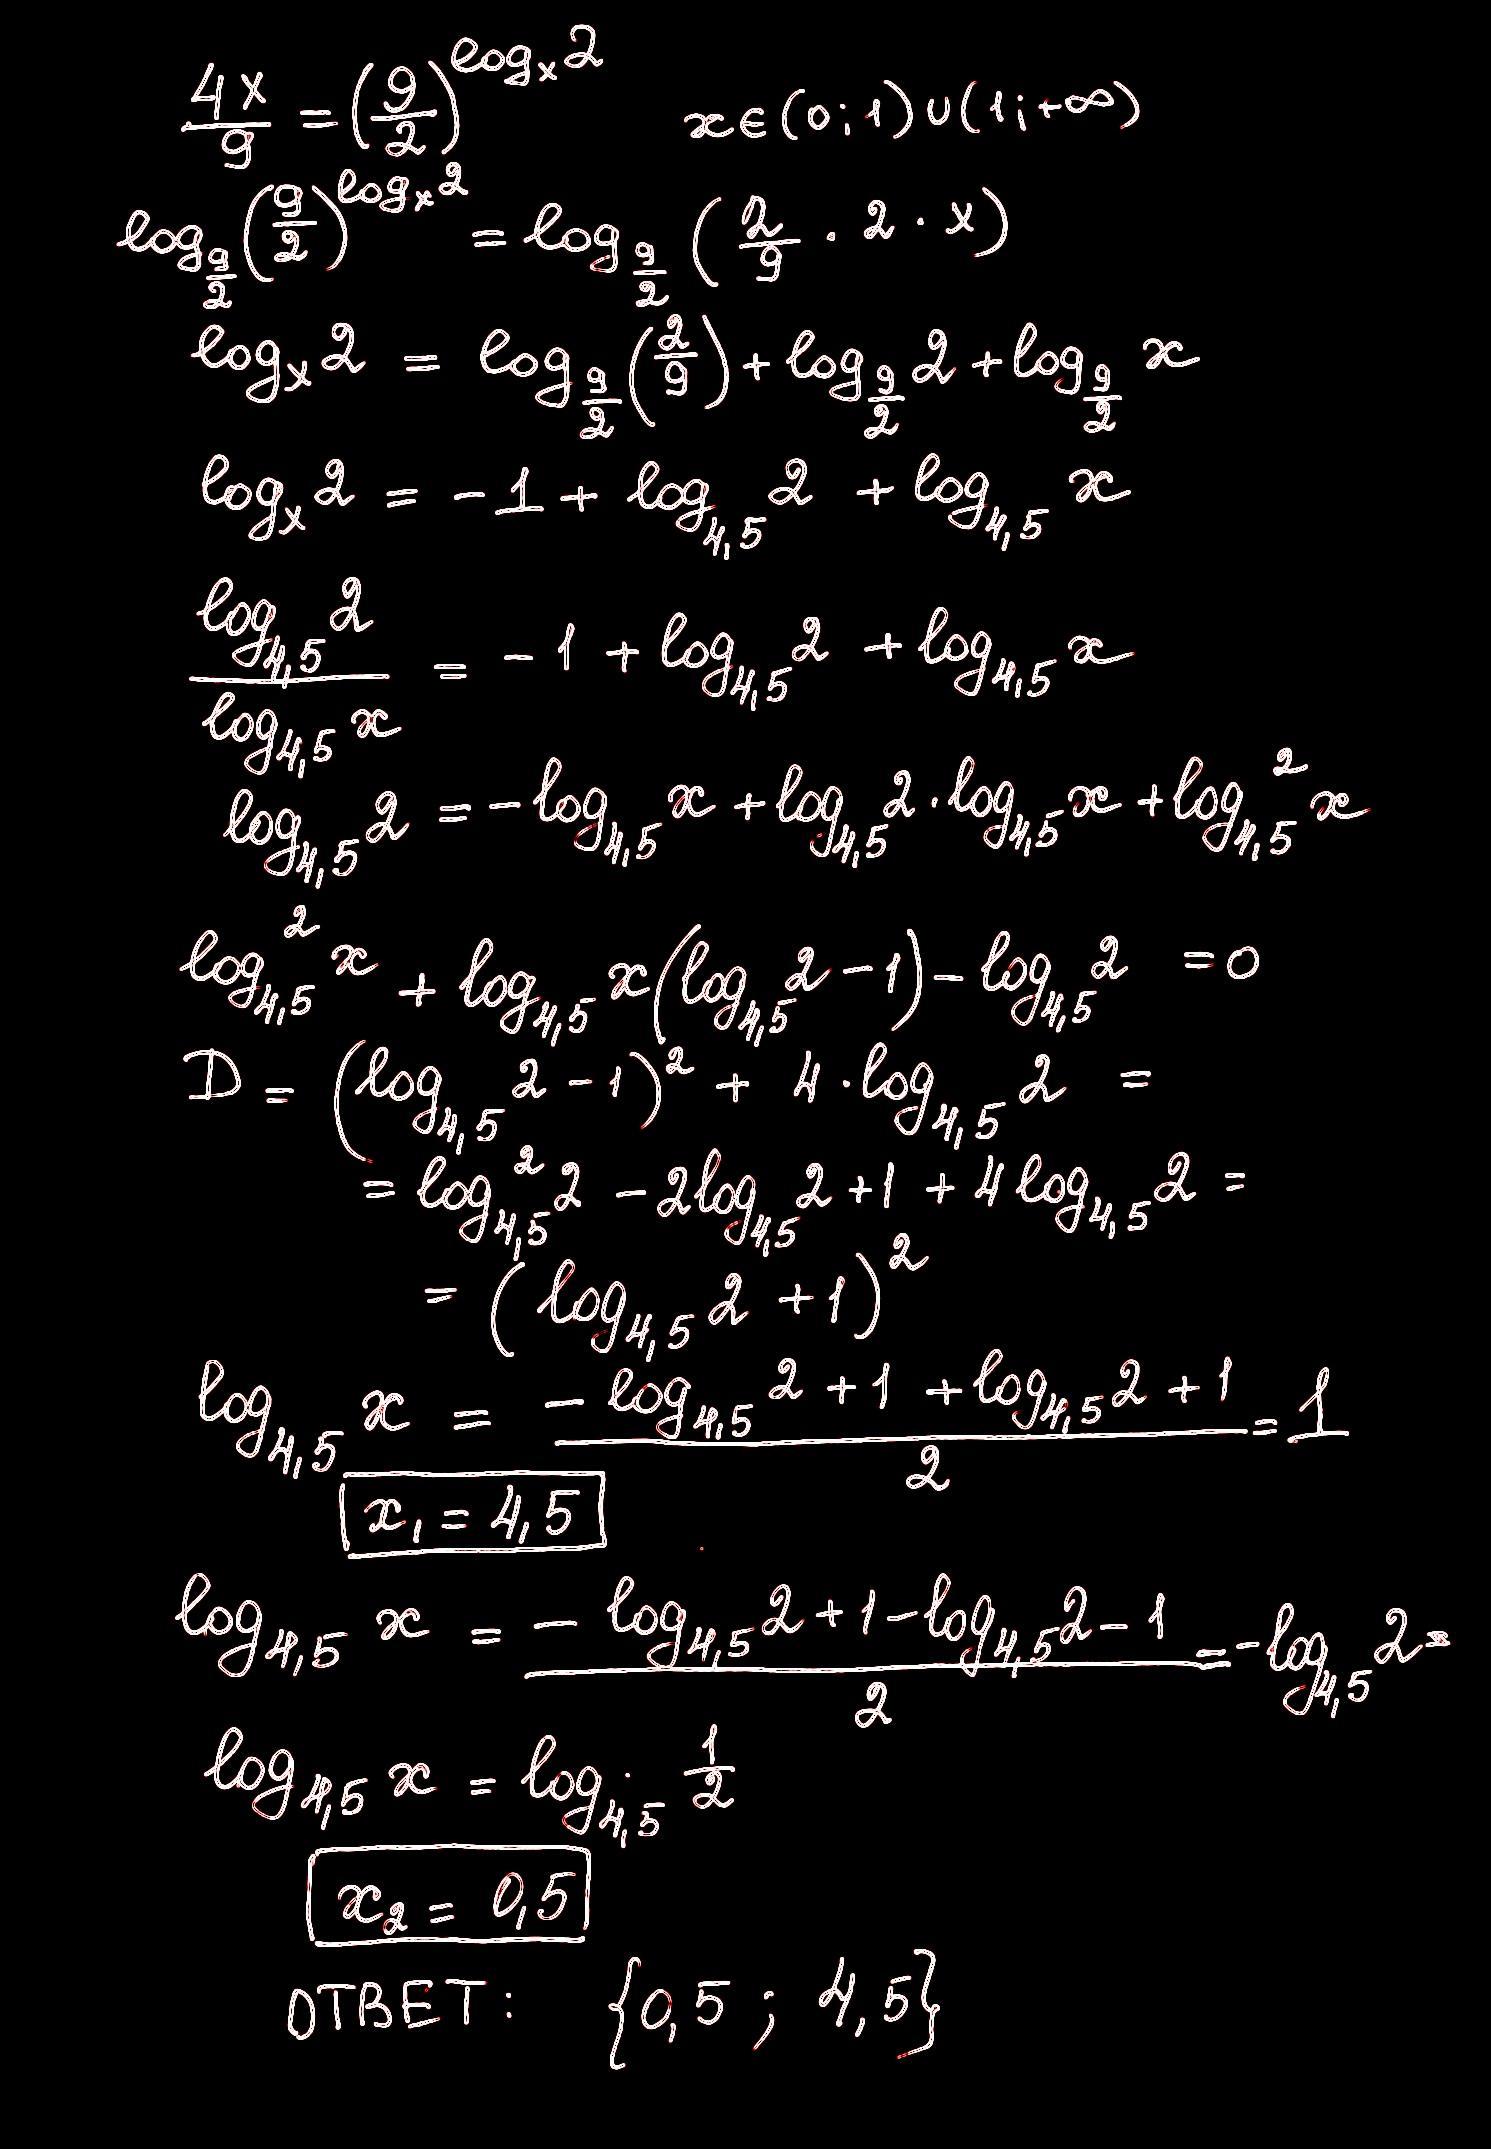 4x/9 = (9/2)^(log_x 2)   x∈(0;1)∪(1;+∞)
log_(9/2) (9/2)^(log_x 2) = log_(9/2) (2/9 · 2 · x)
log_x 2 = log_(9/2) (2/9) + log_(9/2) 2 + log_(9/2) x
log_x 2 = -1 + log_4,5 2 + log_4,5 x
log_4,5 2 / log_4,5 x = -1 + log_4,5 2 + log_4,5 x
log_4,5 2 = -log_4,5 x + log_4,5 2 · log_4,5 x + log²_4,5 x
log²_4,5 x + log_4,5 x (log_4,5 2 - 1) - log_4,5 2 = 0
D = (log_4,5 2 - 1)² + 4 · log_4,5 2 =
= log²_4,5 2 - 2log_4,5 2 + 1 + 4 log_4,5 2 =
= (log_4,5 2 + 1)²
log_4,5 x = (- log_4,5 2 + 1 + log_4,5 2 + 1)/2 = 1
x₁ = 4,5
log_4,5 x = (- log_4,5 2 + 1 - log_4,5 2 - 1)/2 = - log_4,5 2 =
log_4,5 x = log_4,5 1/2
x₂ = 0,5
ОТВЕТ: {0,5 ; 4,5}